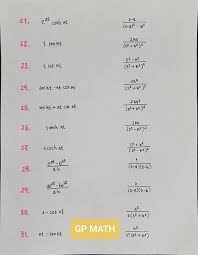 21. e^at cosh nt    s-a / (s-a)² - n²
22. t sin nt    2ns / (s²+n²)²
23. t cos nt    s²-n² / (s²+n²)²
24. sin nt - nt cos nt    2n³ / (s²+n²)²
25. sin nt + nt cos nt    2ns² / (s²+n²)²
26. t sinh nt    2ns / (s²-n²)²
27. t cosh nt    s²+n² / (s²-n²)²
28. e^at - e^bt / a-b    1 / (s-a)(s-b)
29. ae^at - be^bt / a-b    s / (s-a)(s-b)
30. 1 - cos nt    n² / s(s²+n²)
31. nt - sin nt    n³ / s²(s²+n²)
GP MATH